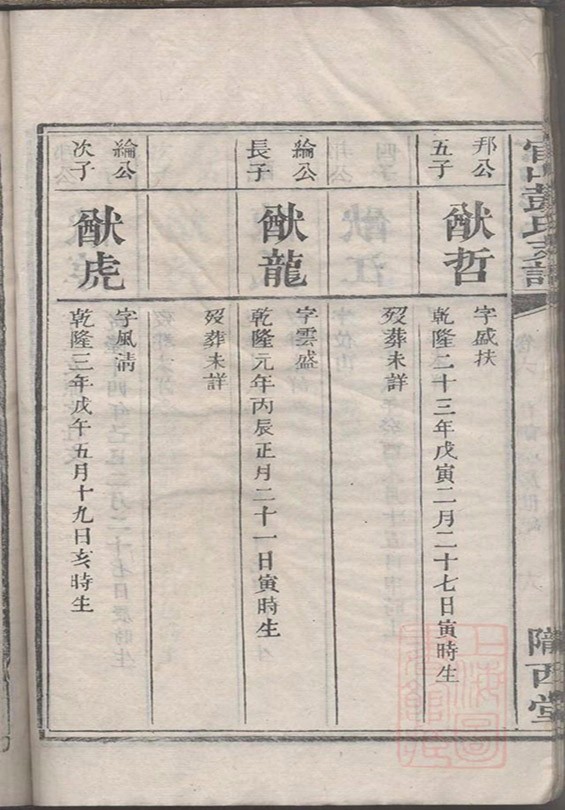 彭氏支譜
隴西堂
邦公
五子
猷哲
字盛扶
乾隆二十三年戊寅二月二十七日寅時生
歿葬未詳
綸公
長子
猷龍
字雲盛
乾隆元年丙辰正月二十一日寅時生
歿葬未詳
綸公
次子
猷虎
字風清
乾隆三年戊午五月十九日亥時生